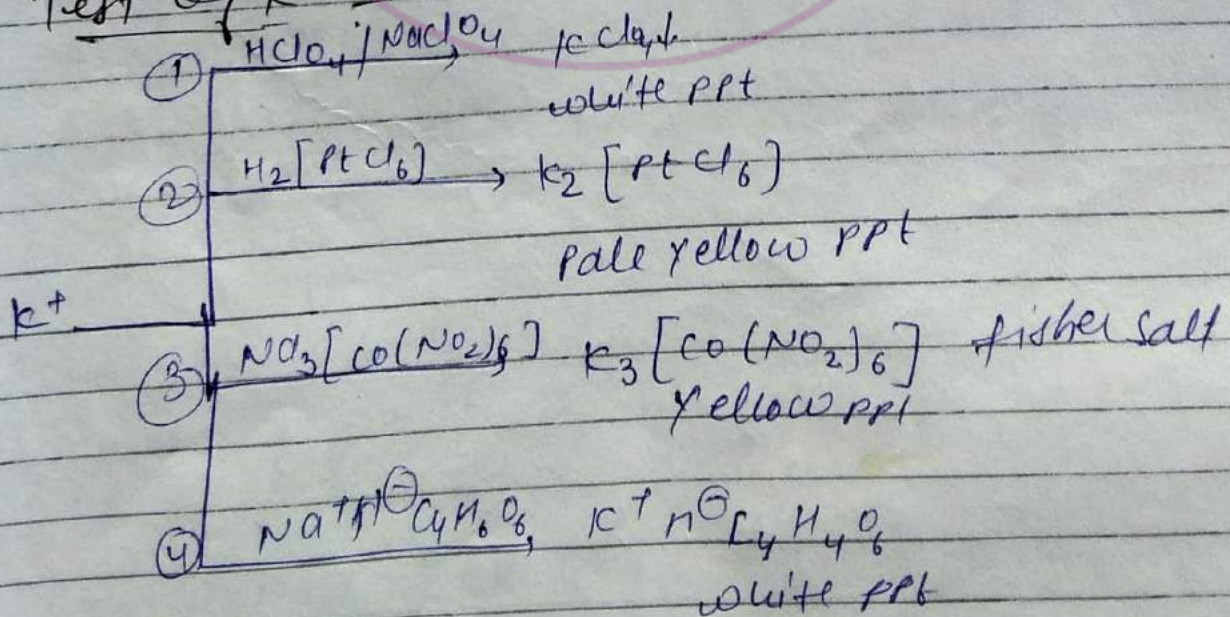 Test of K
① HClO4/NaClO4 KClO4↓
white ppt
② H2[PtCl6] → K2[PtCl6]
Pale Yellow ppt
K+
③ Na3[Co(NO2)6] K3[Co(NO2)6] fisher salt
Yellow ppt
④ Na+H⊖C4H6O6 K+H⊖C4H4O6
white ppt